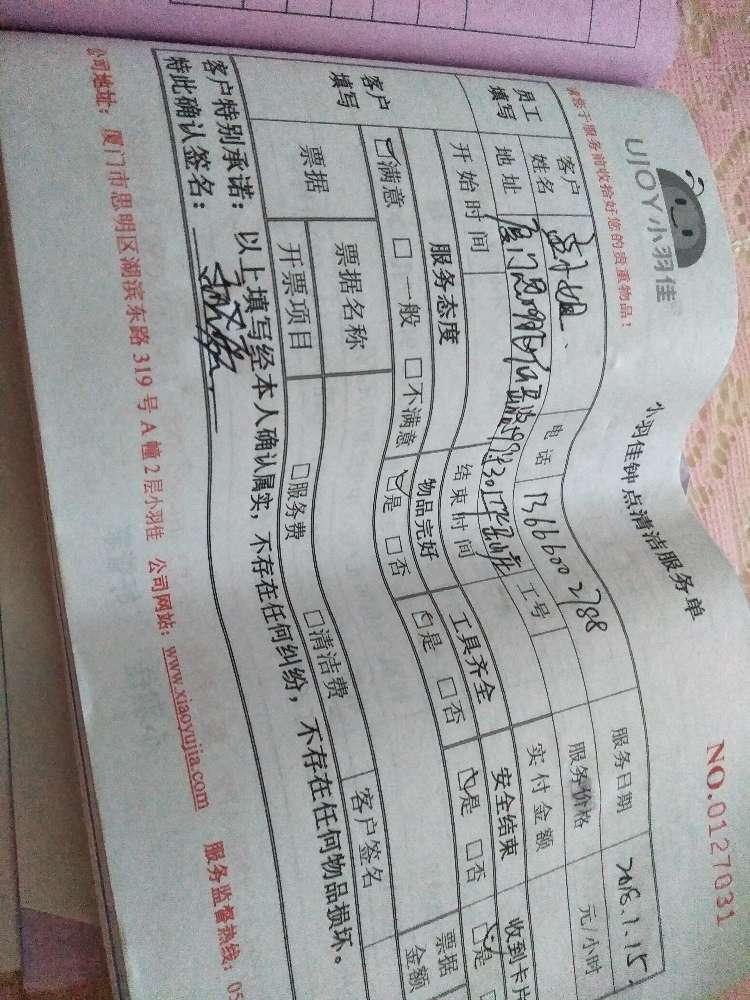 UJOY小羽佳
小羽佳钟点清洁服务单
NO.0127031
请您于服务前收拾好您的贵重物品！
员工填写
客户姓名
电话 13666002788
服务日期 2018.1.15
地址
工号
服务价格 元/小时
开始时间
结束时间
实付金额
客户填写
服务态度 物品完好 工具齐全 安全结束 收到卡片
满意 □一般 □不满意 是 □否 是 □否 是 □否 是
票据
票据名称
客户签名
票据金额
开票项目 □服务费 □清洁费
客户特别承诺：以上填写经本人确认属实，不存在任何纠纷，不存在任何物品损坏。
特此确认签名：
公司地址：厦门市思明区湖滨东路319号A幢2层小羽佳 公司网站：www.xiaoyujia.com 服务监督热线：05